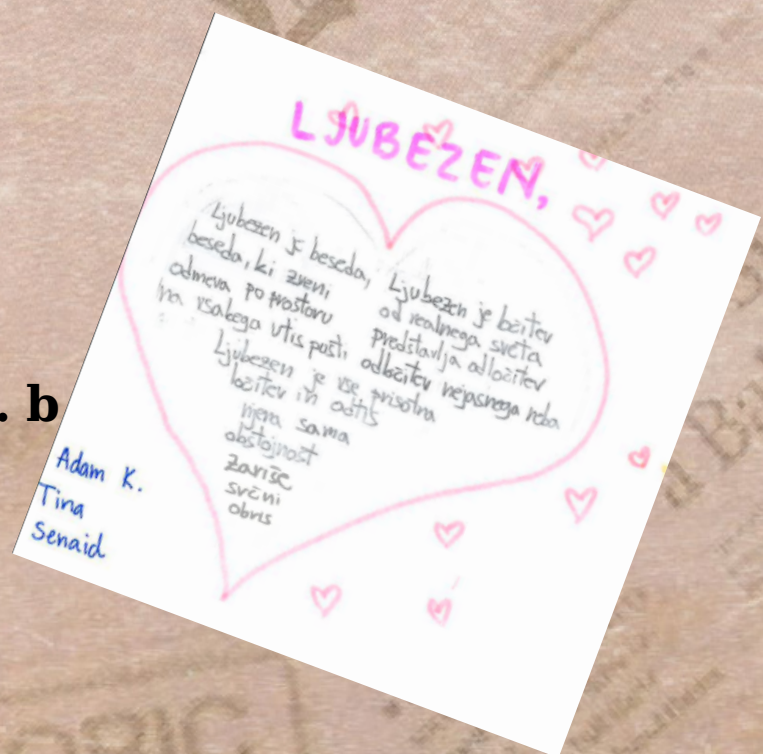 LJUBEZEN,
Ljubezen je beseda,
beseda, ki zveni
odmeva po prostoru
na vsakega vtis pusti
Ljubezen je ločitev
od realnega sveta
predstavlja odločitev
odločitev nejasnega neba
Ljubezen je vse prisotna
ločitev in očitis
njena sama
obstojnost
zariše
srčni
obris
. b
Adam K.
Tina
Senaid